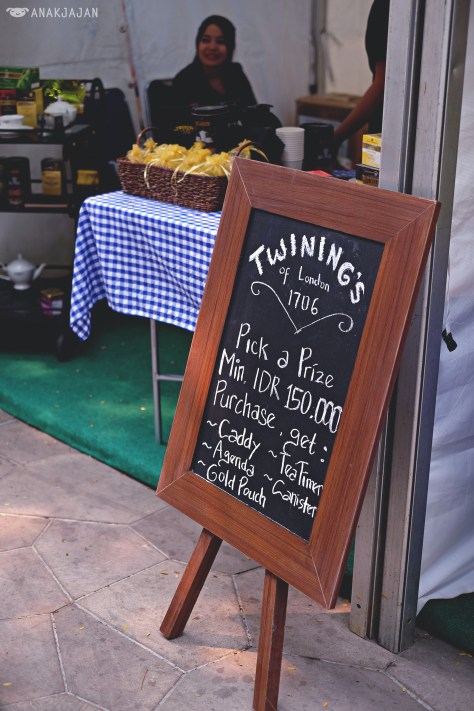 ANAKJAJAN
TWINING'S
of London
1706
Pick a Prize
Min. IDR 150.000
Purchase, get:
~ Caddy
~ TeaTimer
~ Agenda
~ Canister
~ Gold Pouch